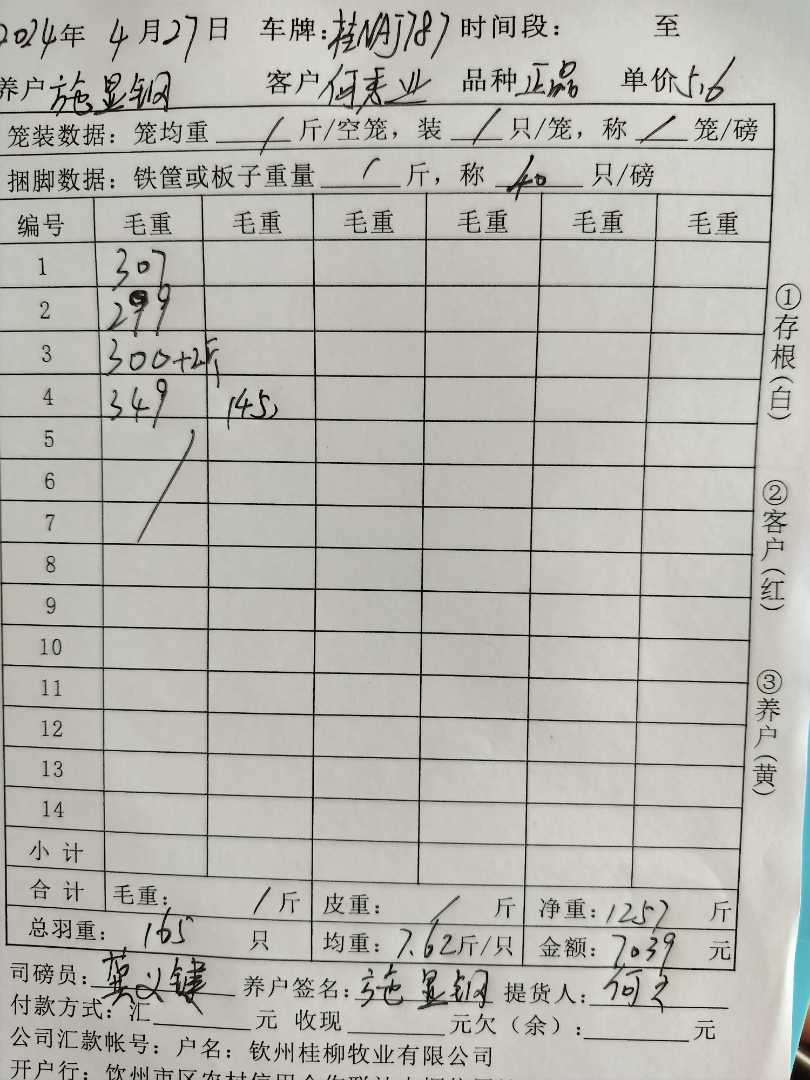 2024年 4月27日 车牌:桂NAJ787 时间段: 至
养户 施显钢 客户 何秀业 品种 正品 单价 5.6
笼装数据: 笼均重 / 斤/空笼, 装 / 只/笼, 称 / 笼/磅
捆脚数据: 铁筐或板子重量 / 斤, 称 40 只/磅
编号 毛重 毛重 毛重 毛重 毛重 毛重
1 307
2 299
3 300+2斤
4 349 (45)
5
6
7
8
9
10
11
12
13
14
小计
合计 毛重: / 斤 皮重: / 斤 净重: 1257 斤
总羽重: 165 只 均重: 7.62斤/只 金额: 7039 元
司磅员: 莫义键 养户签名: 施显钢 提货人: 何
付款方式: 汇 元 收现 元欠(余): 元
公司汇款帐号: 户名: 钦州桂柳牧业有限公司
开户行: 钦州市区农村信用合作联社
①存根(白)
②客户(红)
③养户(黄)